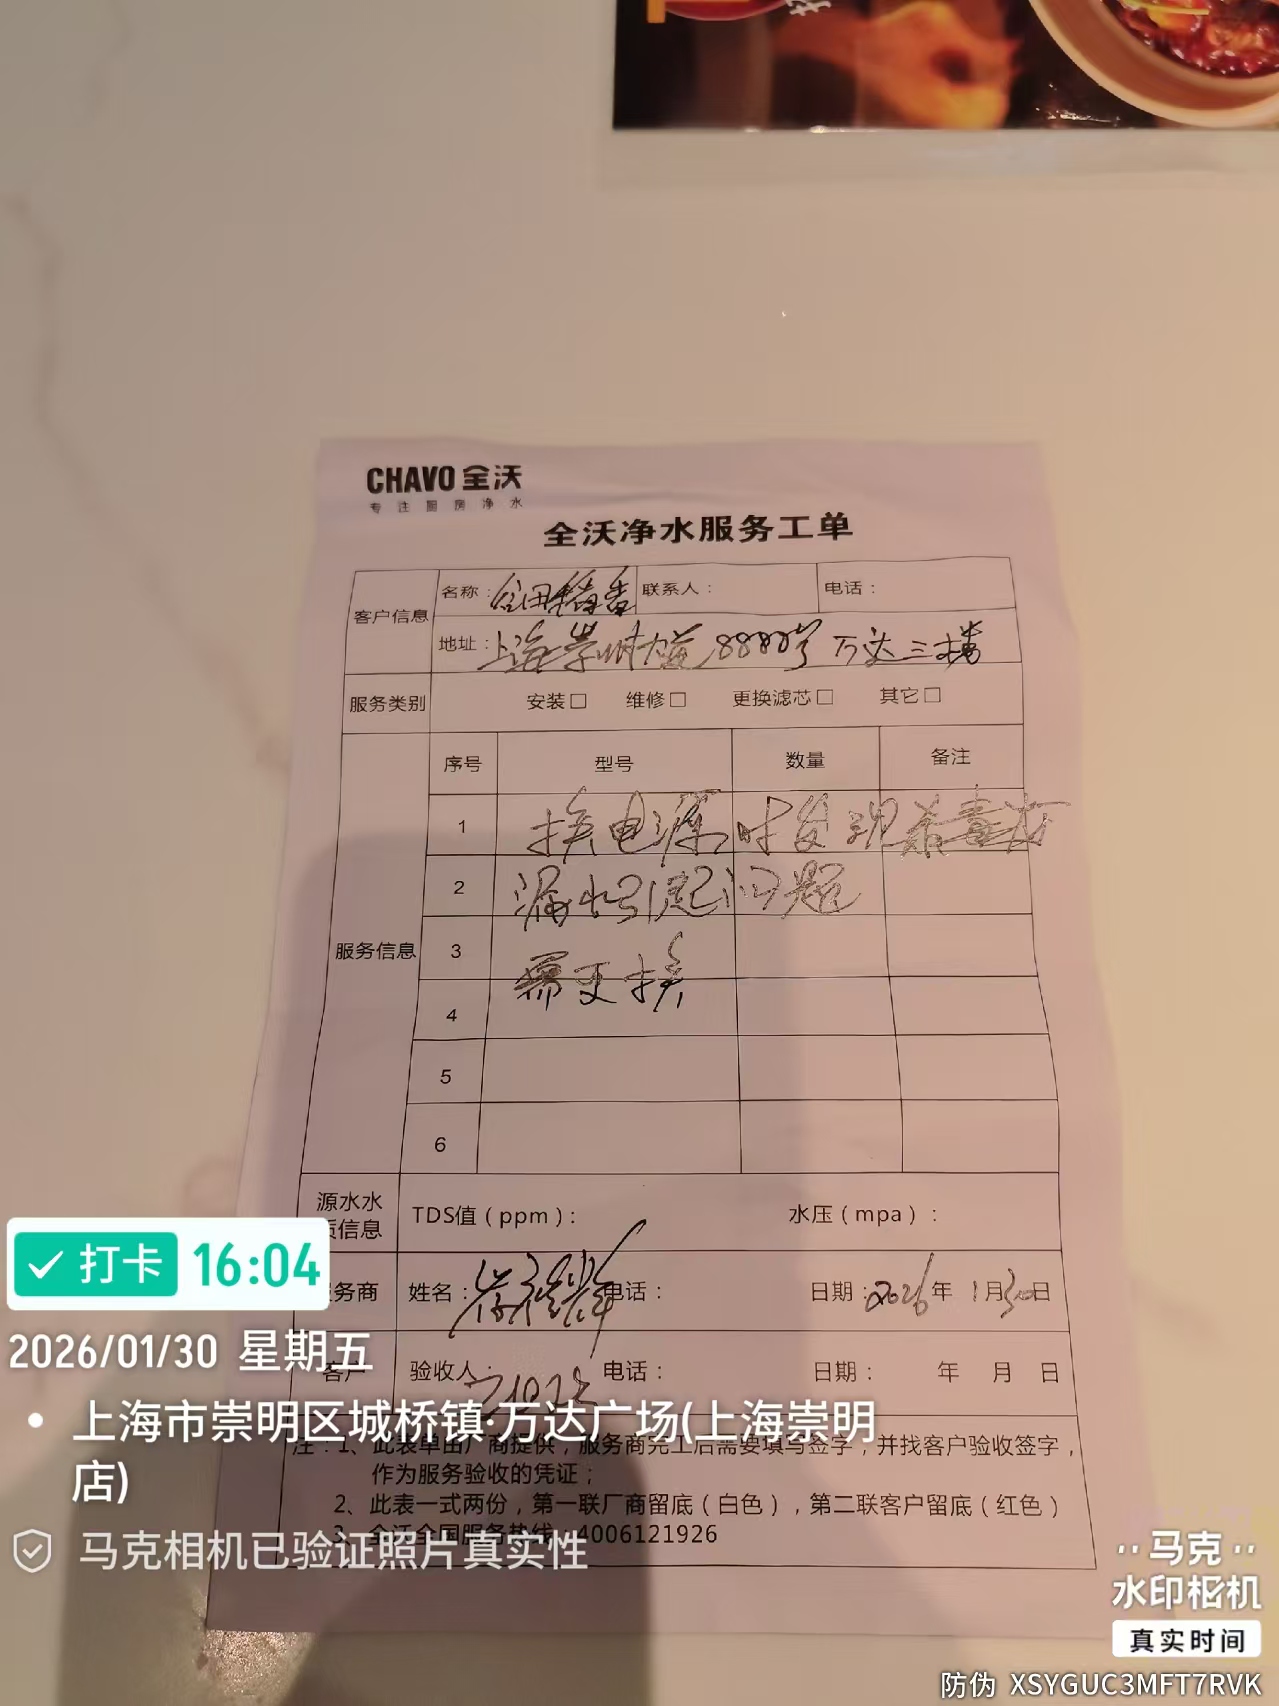 CHAVO 全沃
专注厨房净水
全沃净水服务工单
客户信息 名称： 联系人： 电话：
地址：上海崇明大道8888号万达三楼
服务类别 安装□ 维修□ 更换滤芯□ 其它□
服务信息 序号 型号 数量 备注
1 换电源时发现杀毒灯
2 漏水引起问题
3 需更换
4
5
6
源水水
质信息 TDS值（ppm）： 水压（mpa）：
务商 姓名： 电话： 日期：2026年1月30日
客户 验收人： 电话： 日期： 年 月 日
注：1、此表单由厂商提供，服务商完工后需要填写签字，并找客户验收签字，
作为服务验收的凭证；
2、此表一式两份，第一联厂商留底（白色），第二联客户留底（红色）
3、全沃全国服务热线：4006121926
打卡 16:04
2026/01/30 星期五
上海市崇明区城桥镇·万达广场(上海崇明
店)
马克相机已验证照片真实性
马克
水印相机
真实时间
防伪 XSYGUC3MFT7RVK